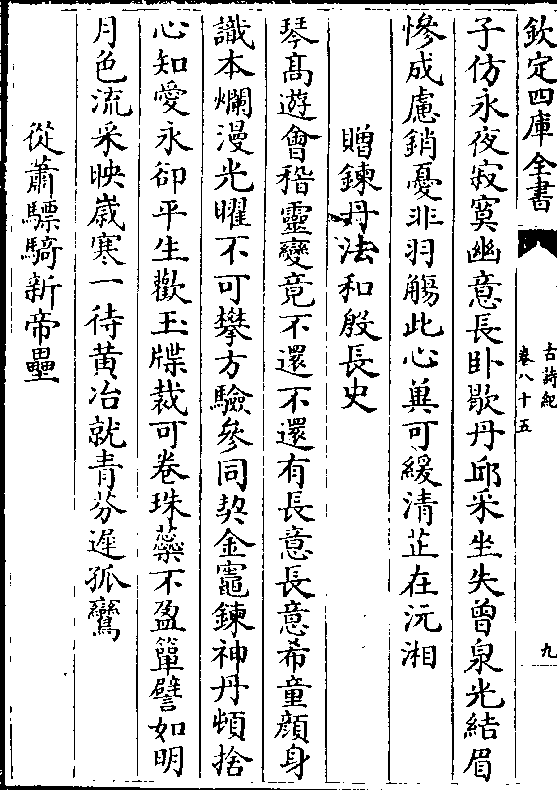 欽定四庫全書
古詩紀
卷八十五
九
子仿永夜寂寞幽意長卧歇丹邱采坐失曾泉光結眉
慘成慮銷憂非羽觴此心與可緩清芷在沅湘
贈鍊丹法和殷長史
琴髙遊會稽靈變竟不還不還有長意長意希童顔身
識本爛漫光曜不可攀方驗參同契金竈鍊神丹頓捨
心知愛永卻平生歡玉牒裁可卷珠蘂不盈簞譬如明
月色流采映嵗寒一待黄冶就青芬遲孤鸞
從蕭驃騎新帝壘